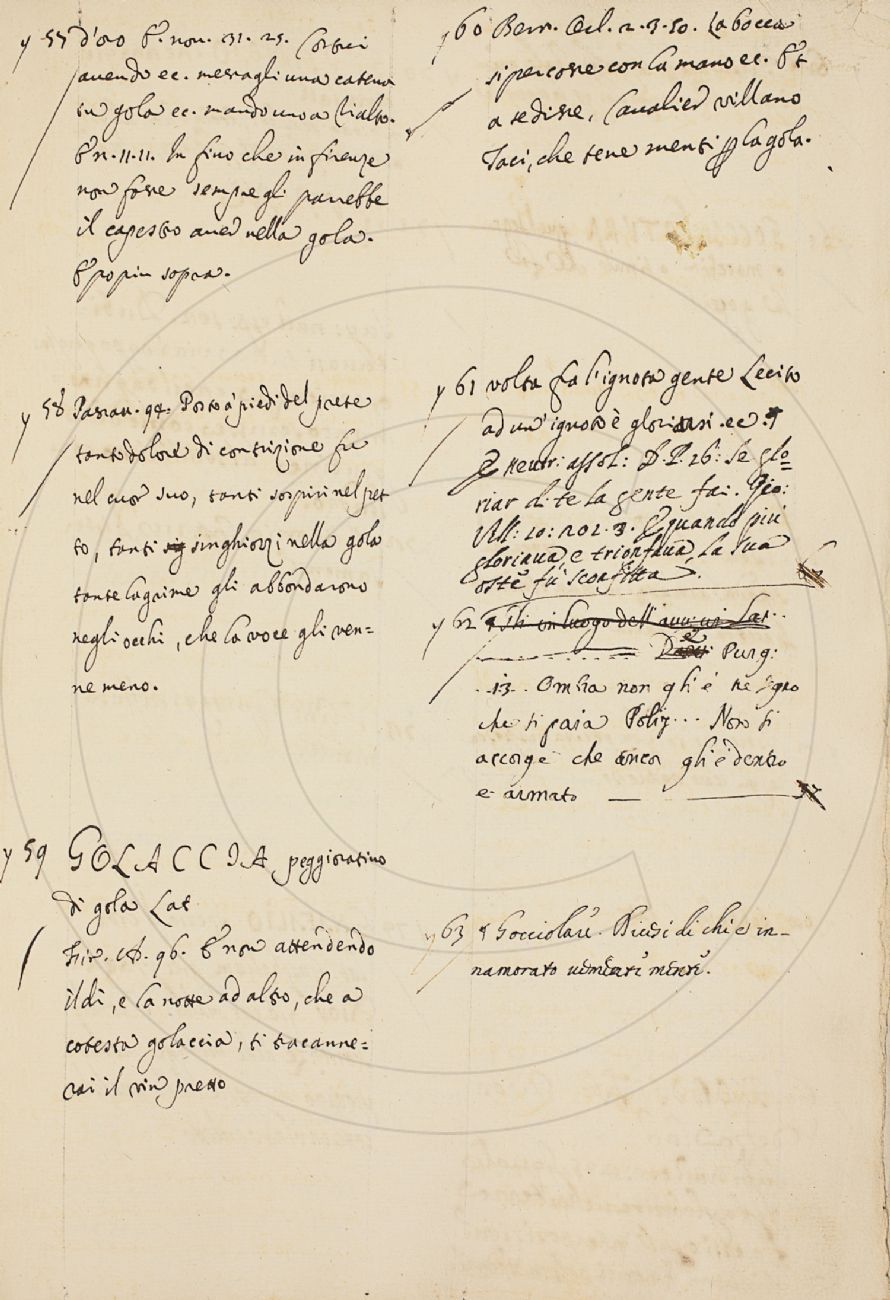 y 57 d'oro E nov. 31. 25. Costui
avendo ec. messagli una catena
in gola ec. mandò uno a Rialto.
E n. 11. 11. In fino che in firenze
non fosse sempre gli parrebbe
il capestro aver nella gola.
E po più sopra.
y 58 Passav. 94. Posto à piedi del prete
tanto dolore di contrizione fu
nel cuor suo, tanti sospiri nel pet
to, tanti singhiozzi nella gola
tante lagrime gli abbondarono
negli occhi, che la voce gli ven=
ne meno.
y 59 GOLACCIA peggiorativo
di gola Lat
Fir. 96. E non attendendo
il dì, e la notte ad altro, che a
cotesta golaccia, ti tracanne=
rai il vin pretto
y 60 Bern. Orl. 2. 3. 50. La bocca
si percosse con la mano ec. Et
a sedire, Cavalier villano
Taci, che tene menti p la gola.
y 61 volta fra l'ignota gente Lecito
ad un' ignoto è gloriarsi. ec.
neutr: assol: D. P. 26: Se glo=
riar di te la gente fai. Gio:
Vill: 10: 202. 3. E quando più
gloriava, e trionfava, la sua
oste fù sconfitta.
y 62 in luogo dell'
Purg:
13. Ombra non gli è ne segno
che si paia Poliz... Non si
accorge che ancor gli è dentro
e armato
y 63 Gocciolare. Dicesi di chi è in-
namorato